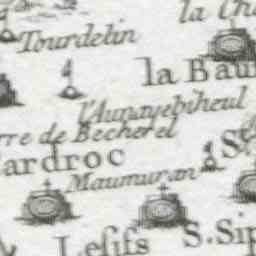 la Cha
Tourdelin
la Bau
l'Aunayebiheul
rre de Becherel
ardroc
S.
Maumuran
Lesifs
S. Sip